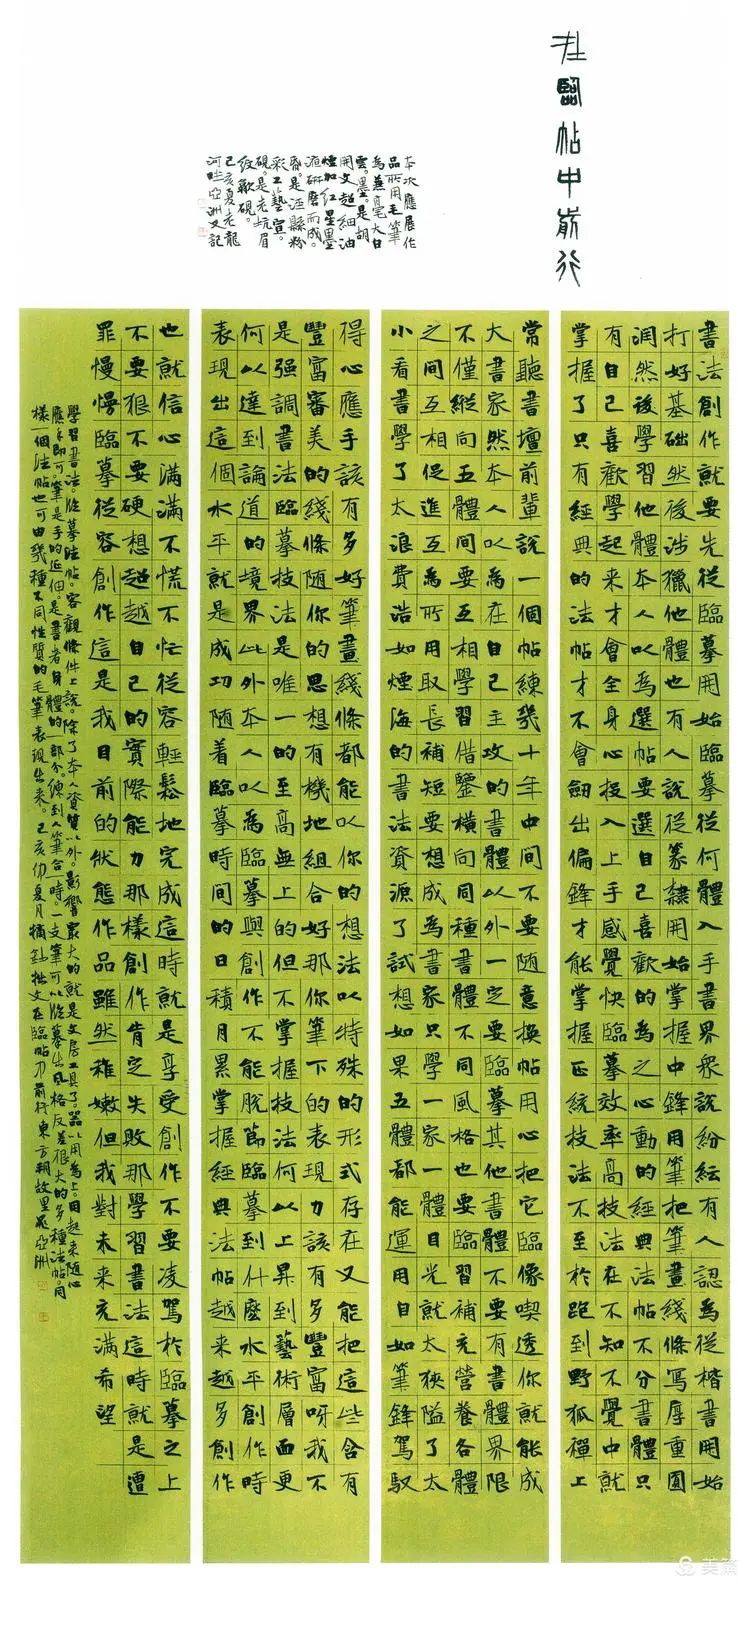 在臨帖中前行
本次應展作
品所用毛筆
為兼毫大白
雲。墨。是胡
開文超細油
煙加紅星墨
液研磨而成。
是涇縣粉
彩工藝宣。
硯。是老坑眉
紋歙硯。
己亥夏老龍
河畔亞洲又記
書法創作就要先從臨摹開始臨摹從何體入手書界衆說紛紜有人認為從楷書開始
打好基础然後涉獵他體也有人說從篆隸開始掌握中鋒用筆把筆畫綫條寫厚重圓
潤然後學習他體本人以為選帖要選自己喜歡的為之心動的經典法帖不分書體只
有自己喜歡學起來才會全身心投入上手感覺快臨摹效率高技法在不知不覺中就
掌握了只有經典的法帖才不會劍出偏鋒才能掌握正統技法不至於跑到野狐禪上
常聽書壇前輩說一個帖練幾十年中間不要隨意換帖用心把它臨像喫透你就能成
大書家然本人以為在自己主攻的書體以外一定要臨摹其他書體不要有書體界限
不僅縱向五體間要互相學習借鑒橫向同種書體不同風格也要臨習補充營養各體
之間互相促進互為所用取長補短要想成為書家只學一家一體目光就太狹隘了太
小看書學了太浪費浩如煙海的書法資源了試想如果五體都能運用自如筆鋒駕馭
得心應手該有多好筆畫綫條都能以你的想法以特殊的形式存在又能把這些含有
豐富審美的綫條隨你的思想有機地組合好那你筆下的表現力該有多豐富呀我不
是强調書法臨摹技法是唯一的至高無上的但不掌握技法何以上昇到藝術層面更
何以達到論道的境界此外本人以為臨摹與創作不能脫節臨摹到什麼水平創作時
表現出這個水平就是成功随着臨摹時間的日積月累掌握經典法帖越来越多創作
也就信心滿滿不慌不忙從容輕鬆地完成這時就是享受創作不要凌駕於臨摹之上
不要狠不要硬想超越自己的實際能力那樣創作肯定失敗那學習書法這時就是遭
罪慢慢臨摹從容創作這是我目前的狀態作品雖然稚嫩但我對未來充滿希望
學習書法。從摹法帖。客觀條件上說。除了本人資質以外。影響最大的就是文房工具了。器以用為上。用起來随心
應手即可。筆是手的延伸。是書者身體的一部分。練到人筆合時。一支筆可以臨摹出風格反差很大的多種法帖。同
樣一個法帖也可由幾種不同性質的毛筆表現出來。己亥仲夏月摘鈔拙文在臨帖中前行東方朔故里聶亞洲
美篇